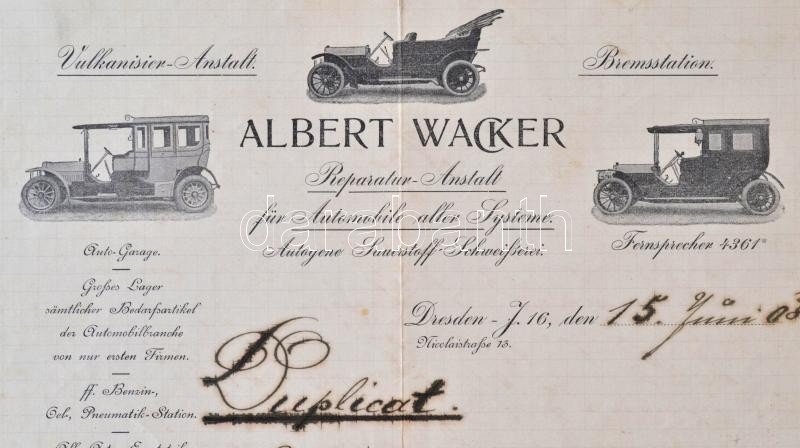 Vulkanisier-Anstalt.
Bremsstation.
ALBERT WACKER
Reparatur-Anstalt
für Automobile aller Systeme.
Autogene Sauerstoff-Schweißerei.
Fernsprecher 4361
Auto-Garage.
Großes Lager
sämtlicher Bedarfsartikel
der Automobilbranche
von nur ersten Firmen.
ff. Benzin-,
Oel-, Pneumatik-Station.
Dresden-J. 16, den 15. Juni 08
Nicolaistraße 15.
Duplicat.
darabanth